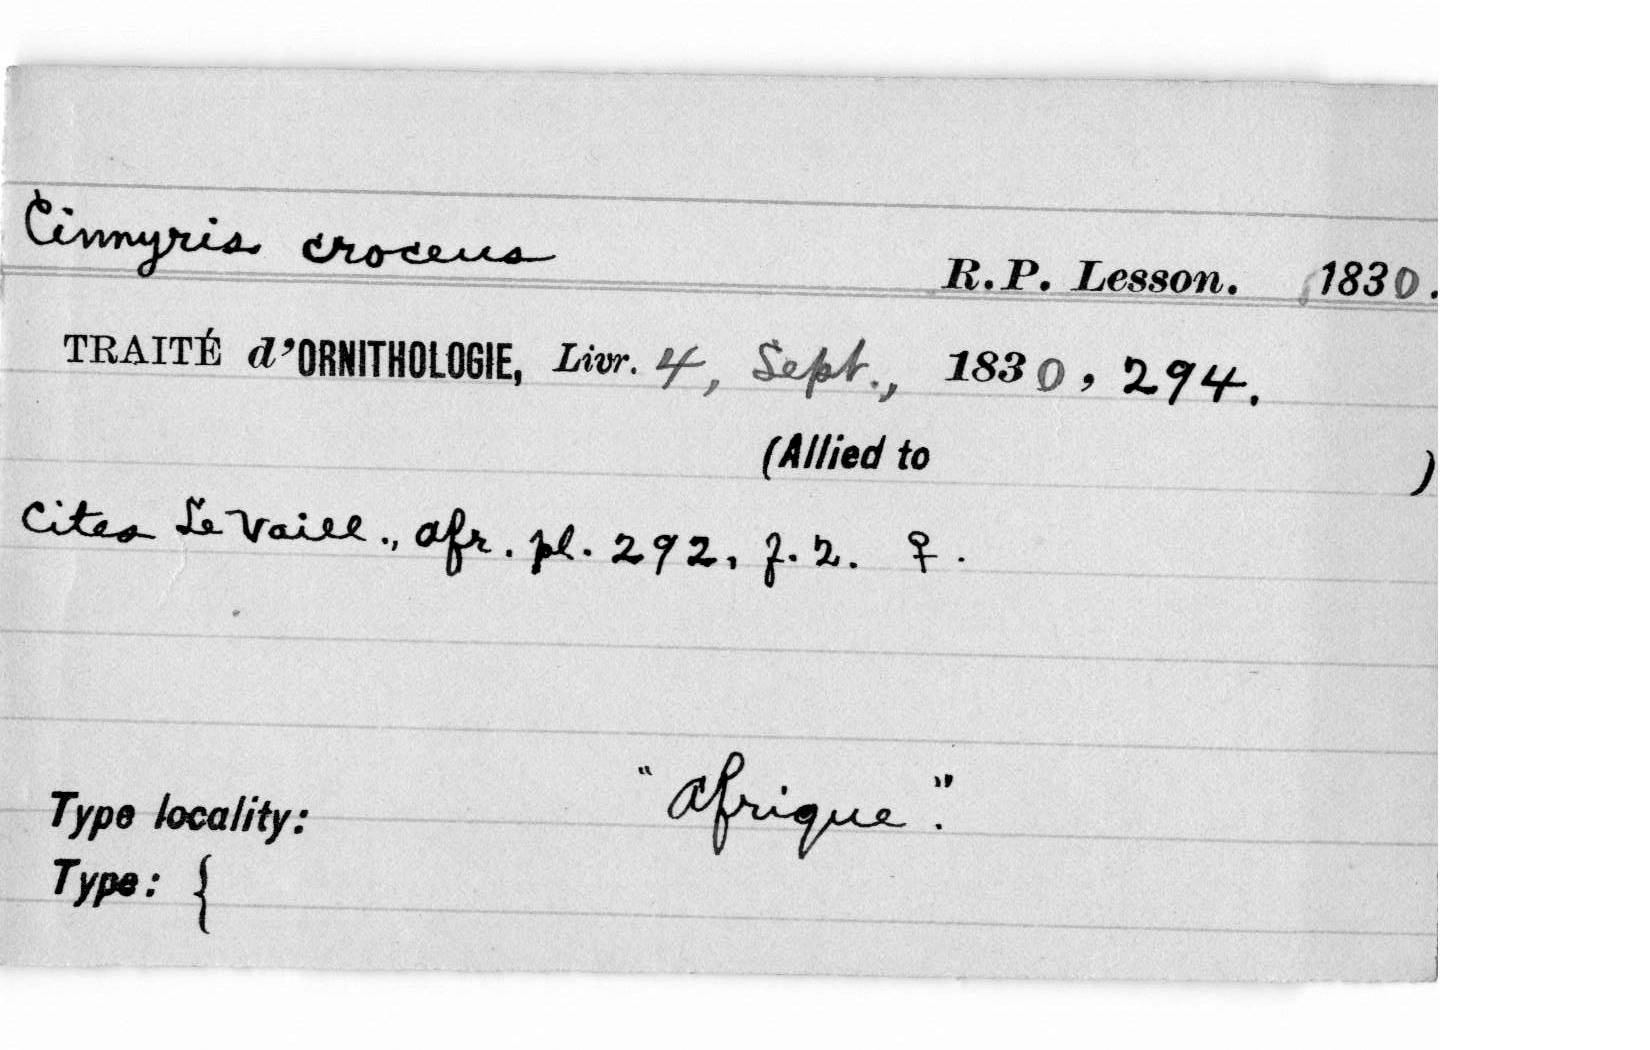 Cinnyris croceus
R.P. Lesson. 1830.
TRAITÉ d'ORNITHOLOGIE, Livr. 4, Sept., 1830, 294.
(Allied to )
Cites Le Vaill., Afr. pl. 292, f. 2. ♀.
Type locality: "Afrique".
Type: {